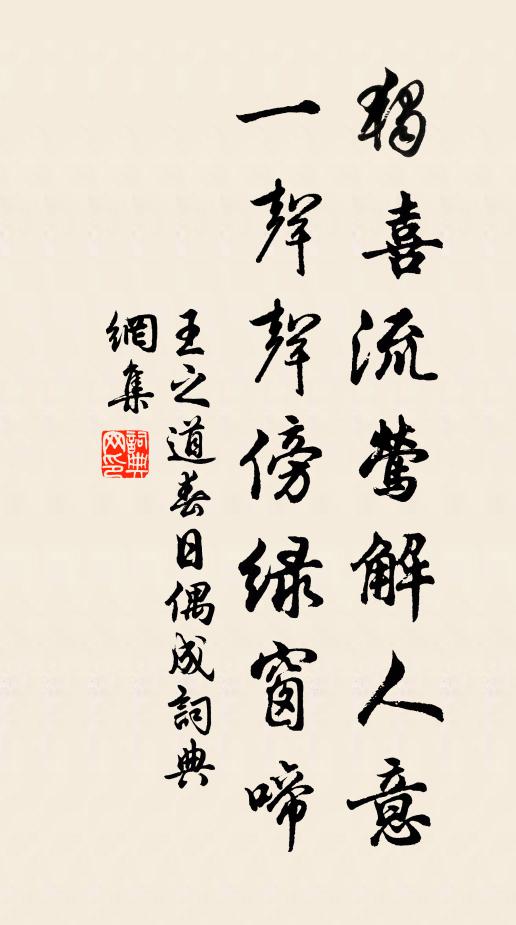 獨喜流鶯解人意
一聲聲傍綠窗啼
王之道春日偶成詞典
網集
詞典
网印